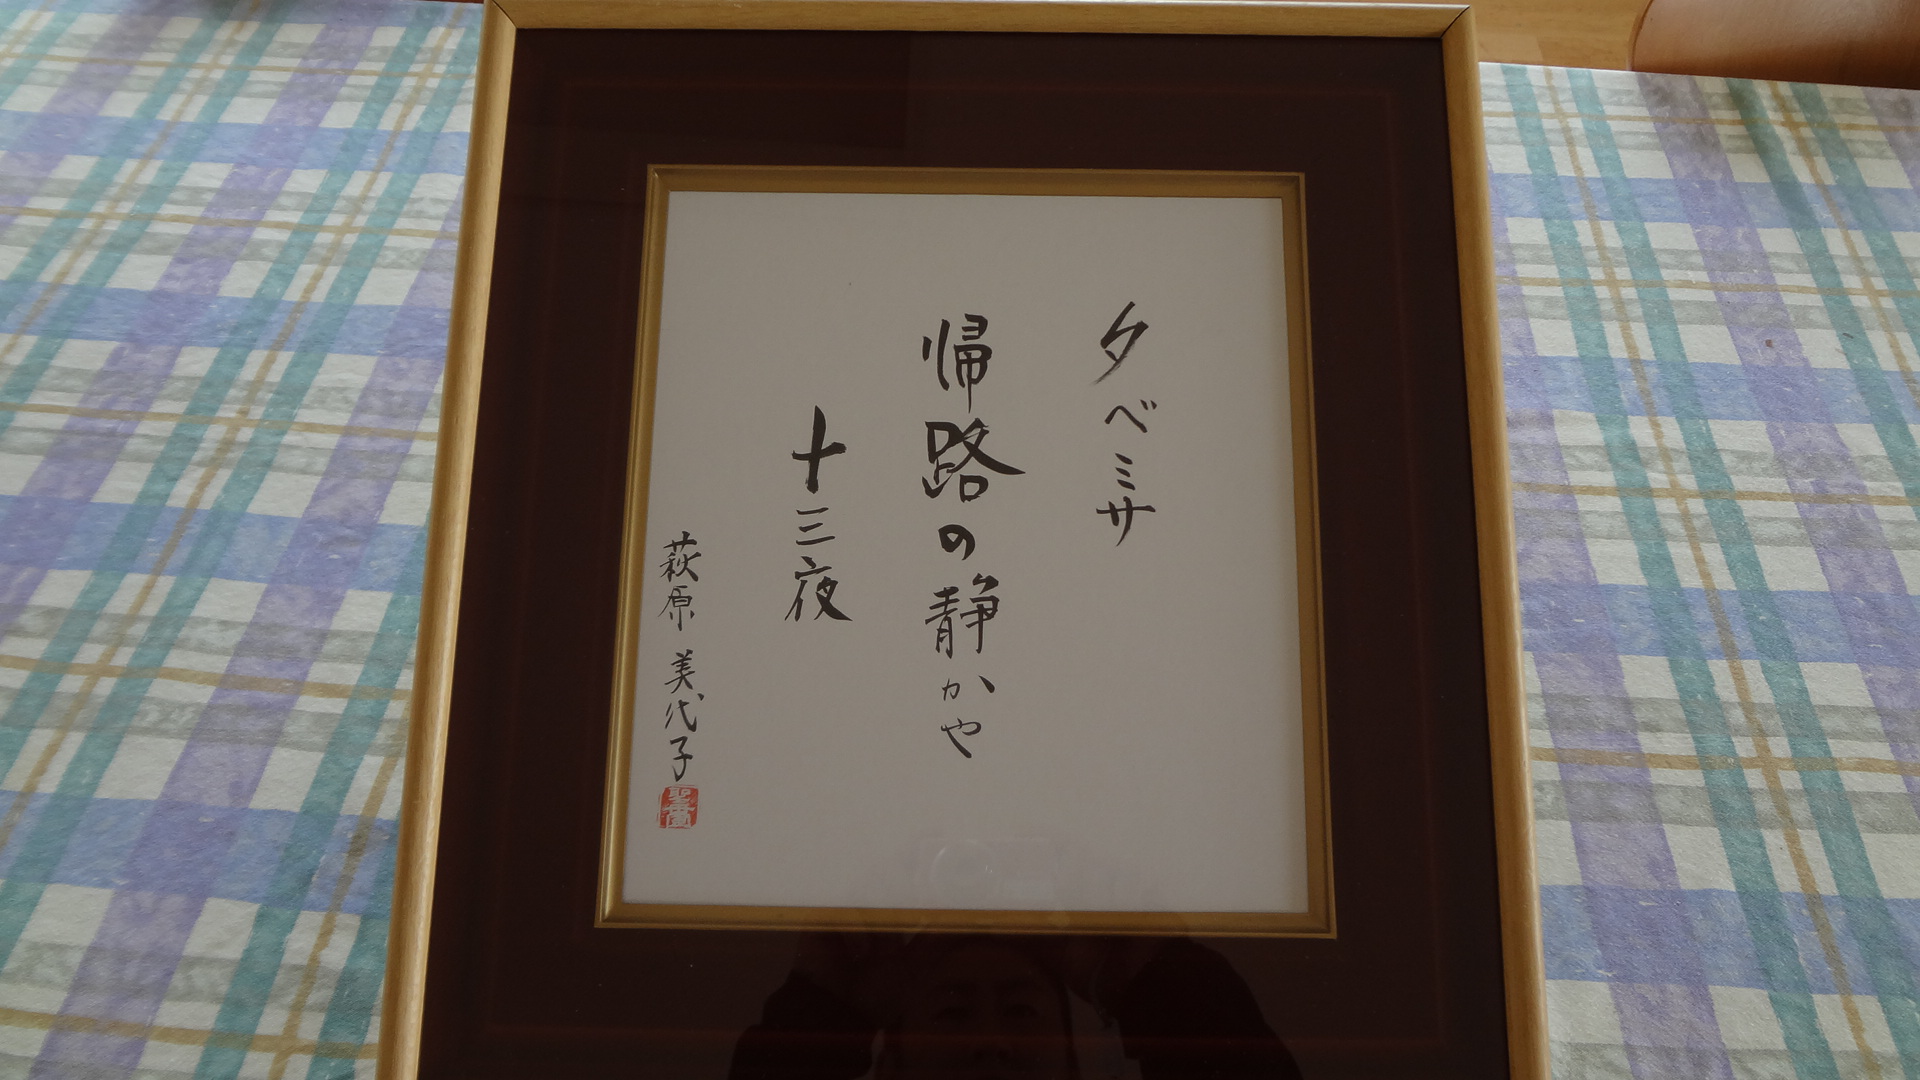 夕べミサ
帰路の静かや
十三夜
萩原 美代子